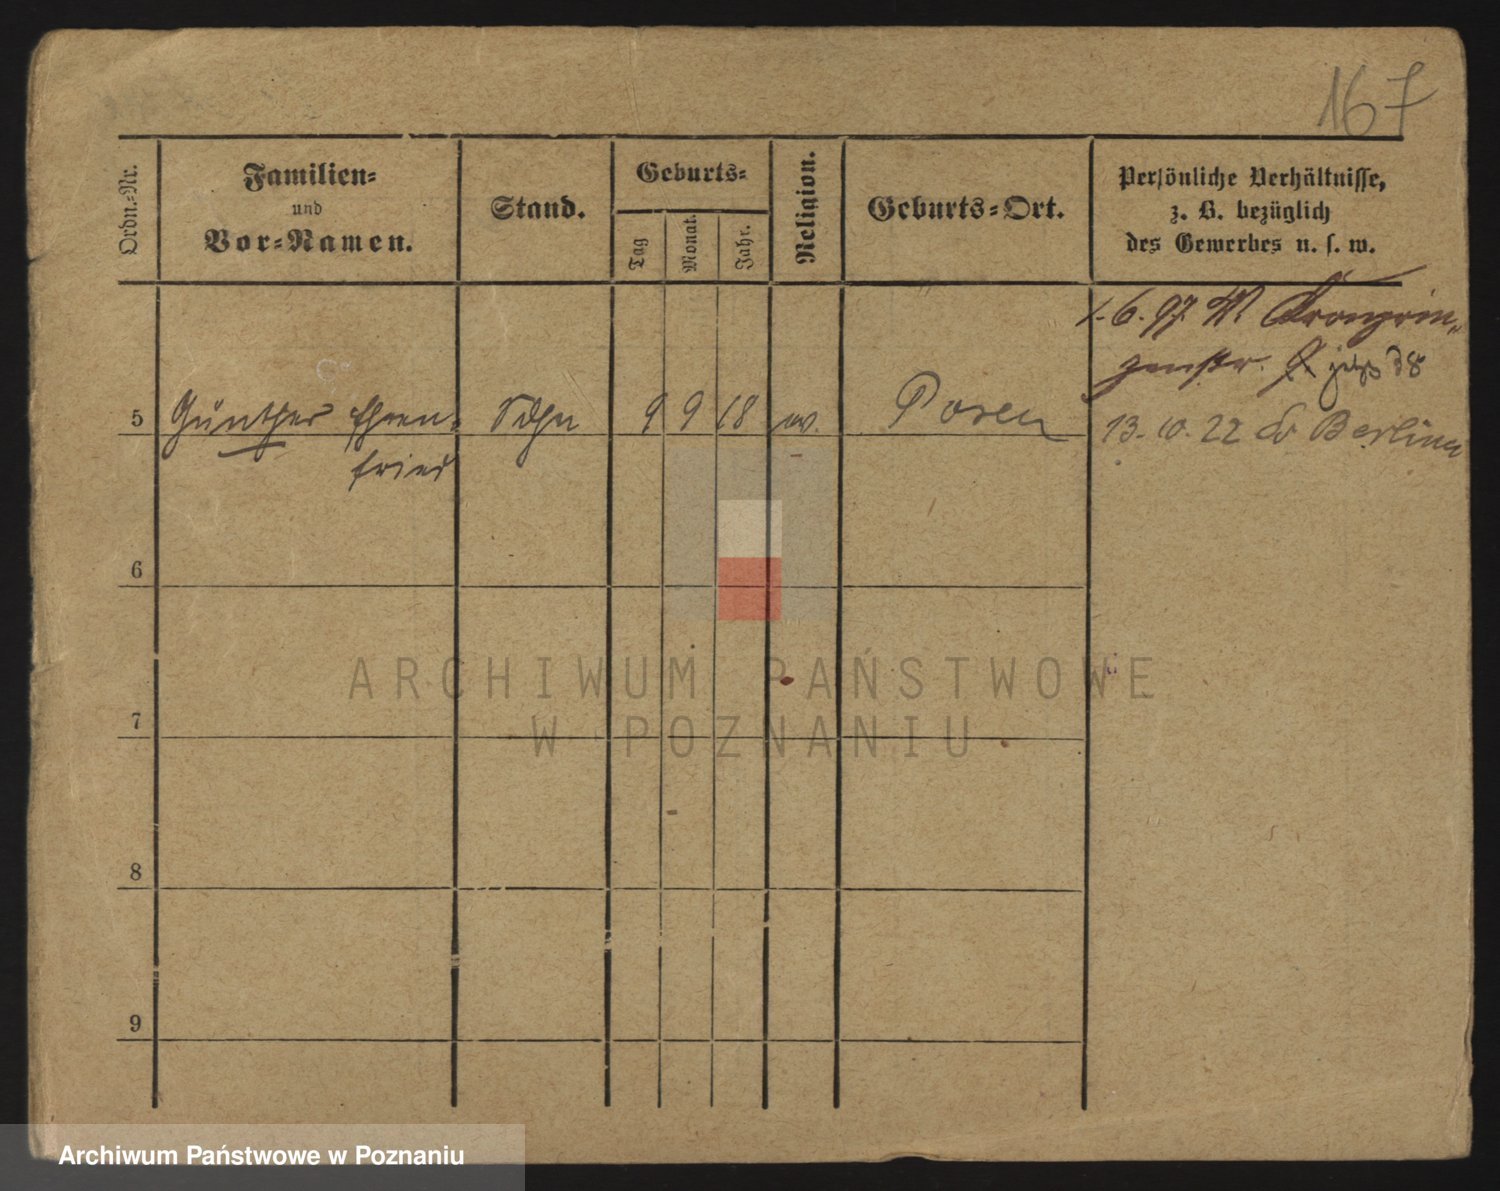 167
Ordn.-Nr.
Familien-
und
Vor-Namen.
Stand.
Geburts-
Tag
Monat.
Jahr.
Religion.
Geburts-Ort.
Persönliche Verhältnisse,
z. B. bezüglich
des Gewerbes u. s. w.
1. 6. 97. W. Kronprin-
zenstr. jetzt 38
5 Günther Ehren- Sohn 9 9 18 ev. Posen
fried
13. 10. 22 Berlin
6
7
8
9
ARCHIWUM PAŃSTWOWE
W POZNANIU
Archiwum Państwowe w Poznaniu